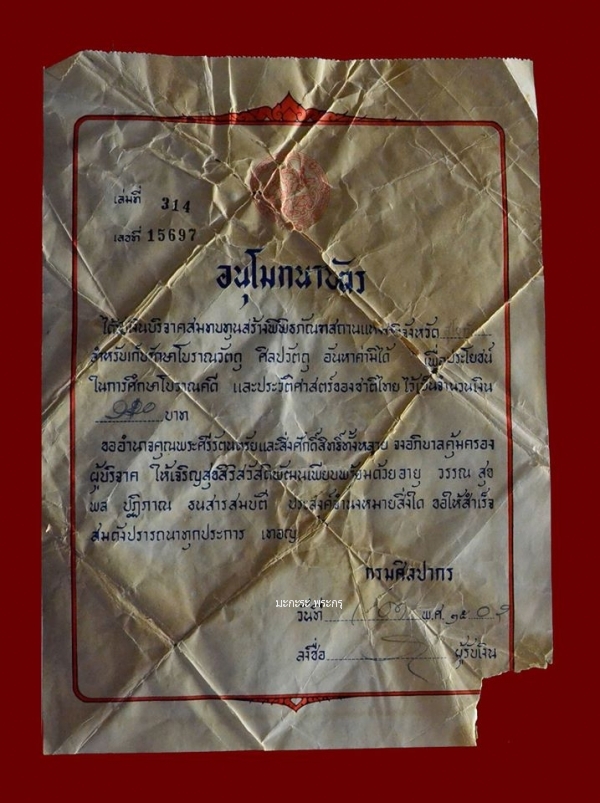 เล่มที่ 314
เลขที่ 15697
อนุโมทนาบัตร
ได้รับเงินบริจาคสมทบทุนสร้างพิพิธภัณฑสถานแห่งชาติจังหวัด
สำหรับเก็บรักษาโบราณวัตถุ ศิลปวัตถุ อันหาค่ามิได้ เพื่อประโยชน์
ในการศึกษาโบราณคดี และประวัติศาสตร์ของชาติไทย ไว้เป็นจำนวนเงิน
บาท
ขออำนาจคุณพระศรีรัตนตรัยและสิ่งศักดิ์สิทธิ์ทั้งหลาย จงอภิบาลคุ้มครอง
ผู้บริจาค ให้เจริญสุขสิริสวัสดิพัฒนเพียบพร้อมด้วยอายุ วรรณ สุข
พล ปฏิภาณ ธนสารสมบัติ ประสงค์จำนงหมายสิ่งใด ขอให้สำเร็จ
สมดังปรารถนาทุกประการ เทอญ
กรมศิลปากร
มะกะระ พระกรุ
วันที่ พ.ศ. ๒๕๐๒
ลงชื่อ ผู้รับเงิน